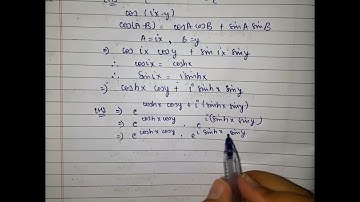 cos (ix-y)
cos(A-B) = cosA cosB + sinA sinB
A = ix , B = y
⇒ cos ix cosy + sin ix siny
∴ cosix = coshx
∴ sinix = isinhx
⇒ coshx cosy + i sinhx siny
⇒ e^coshx cosy + i(sinhx siny)
⇒ e^coshx cosy . e^i(sinhx siny)
⇒ e^coshx cosy . e^i sinhx siny